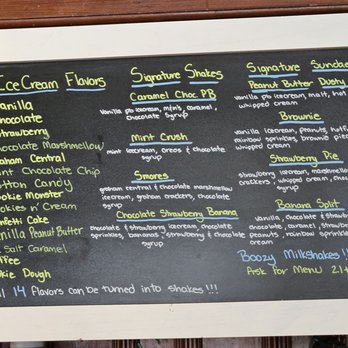 Ice Cream Flavors
Vanilla
Chocolate
Strawberry
Chocolate Marshmellow
Graham Central
Mint Chocolate Chip
Cotton Candy
Cookie Monster
Cookies n' Cream
Confetti Cake
Vanilla Peanut Butter
Salt Caramel
Coffee
Cookie Dough
All 14 flavors can be turned into shakes!!!
Signature Shakes
Caramel Choc PB
vanilla pb icecream, m/m's, caramel,
chocolate syrup
Mint Crush
mint icecream, oreos & chocolate
syrup
Smores
graham central & chocolate marshmellow
icecream, graham crackers, chocolate
syrup
Chocolate Strawberry Banana
chocolate & strawberry icecream, chocolate
sprinkles, bananas, strawberry & chocolate
syrup
Signature Sundae
Peanut Butter
vanilla pb icecream, malt, hot
whipped cream
Brownie
vanilla icecream, peanuts, hot
rainbow sprinkles, brownie
whipped cream
Strawberry Pie
strawberry icecream, marshmellow
crackers, whipped cream,
syrup
Banana Split
vanilla, chocolate & strawberry
chocolate, caramel, strawberry
peanuts, rainbow sprinkles
cream
Boozy Milkshakes!!
Ask for Menu 21+